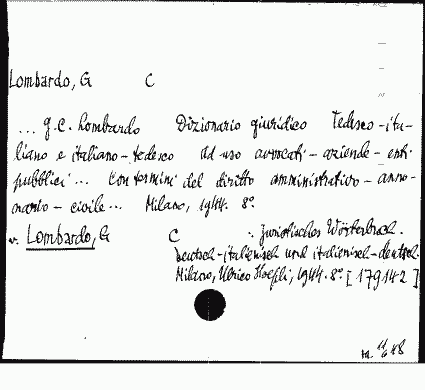 Lombardo, G C
... g.C. Lombardo Dizionario giuridico Tedesco-ita-
liano e italiano-tedesco ad uso avvocati - aziende - enti
pubblici ... Con termini del diritto amministrativo - anno-
nario - civile ... Milano, 1944. 8º
v. Lombardo, G C ... Juristisches Wörterbuch.
Deutsch-italienisch und italienisch-deutsch.
Milano, Ulrico Hoepli, 1944. 8º [179142]